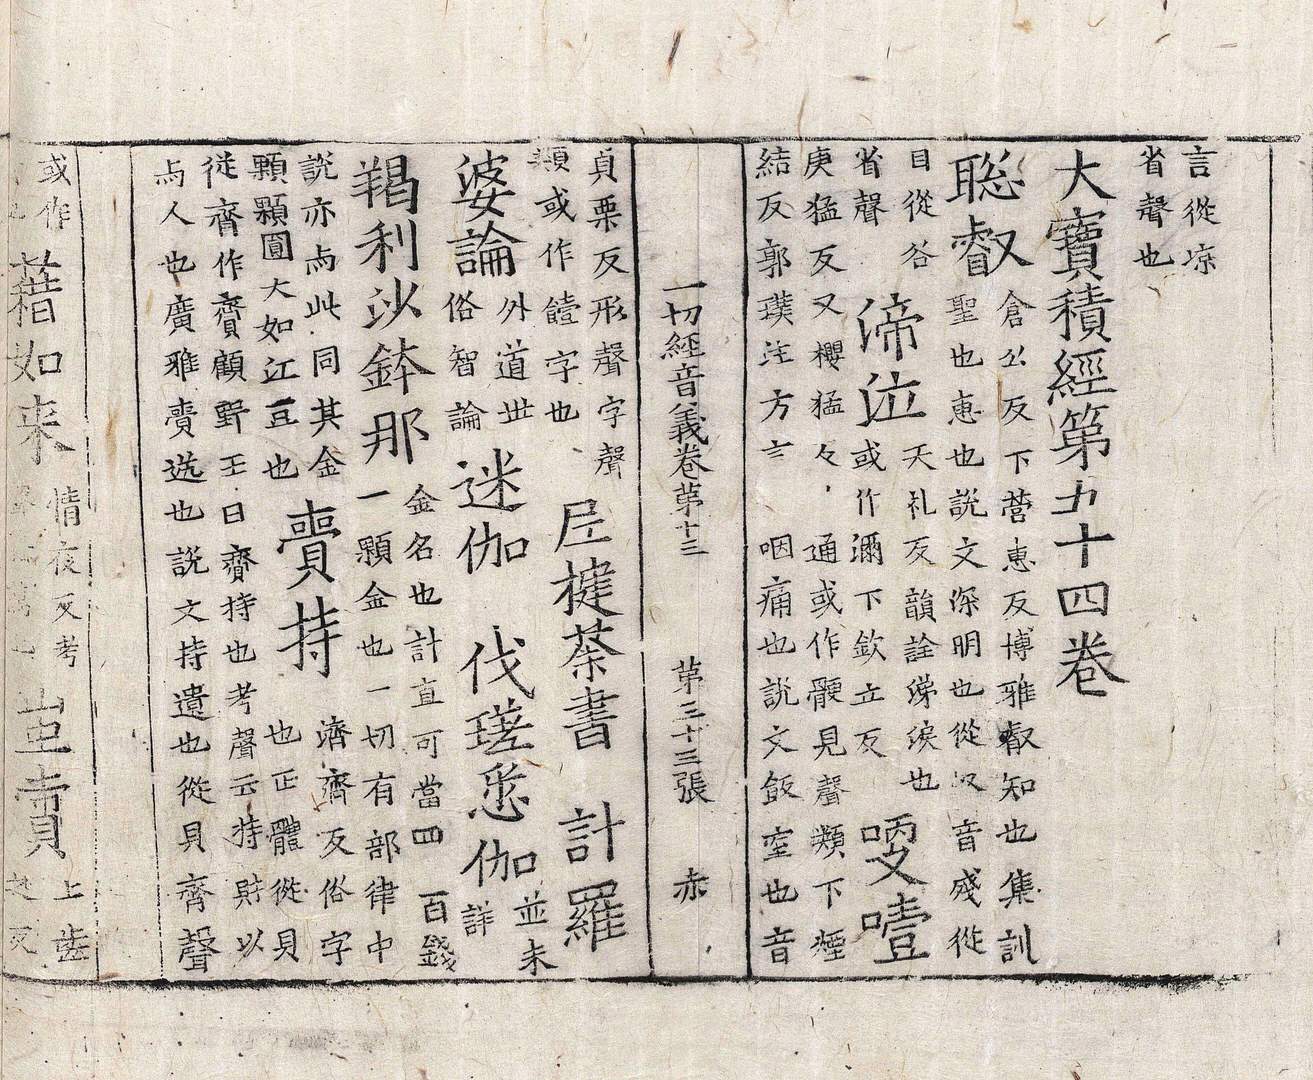 言從凉
省聲也
大寶積經第五十四卷
聡叡
倉公反下營恵反博雅叡知也集訓
聖也恵也説文深明也從㕡音殘從
目從谷
省聲
渧泣
天礼反韻詮渧涙也
或作濔下欽立反
哽噎
庚猛反又櫻猛々
通或作骾見聲類下煙
結反郭璞注方言
咽痛也説文飯窒也音
一切經音義卷第十三
第三十三張
赤
貞栗反形聲字聲
類或作饐字也
尼揵荼書
計羅
婆論
外道世
俗智論
迷伽
伐瑳悉伽
並未
詳
羯利沙鉢那
金名也計直可當四百錢
一顆金也一切有部律中
説亦与此同其金
顆顆圓大如江豆也
賷持
濟齊反俗字
也正體從貝
從齊作齎顧野王曰齎持也考聲云持財以
与人也廣雅賷送也説文持遺也從貝齊聲
或作
藉如来
情夜反考
賷
上齒
反